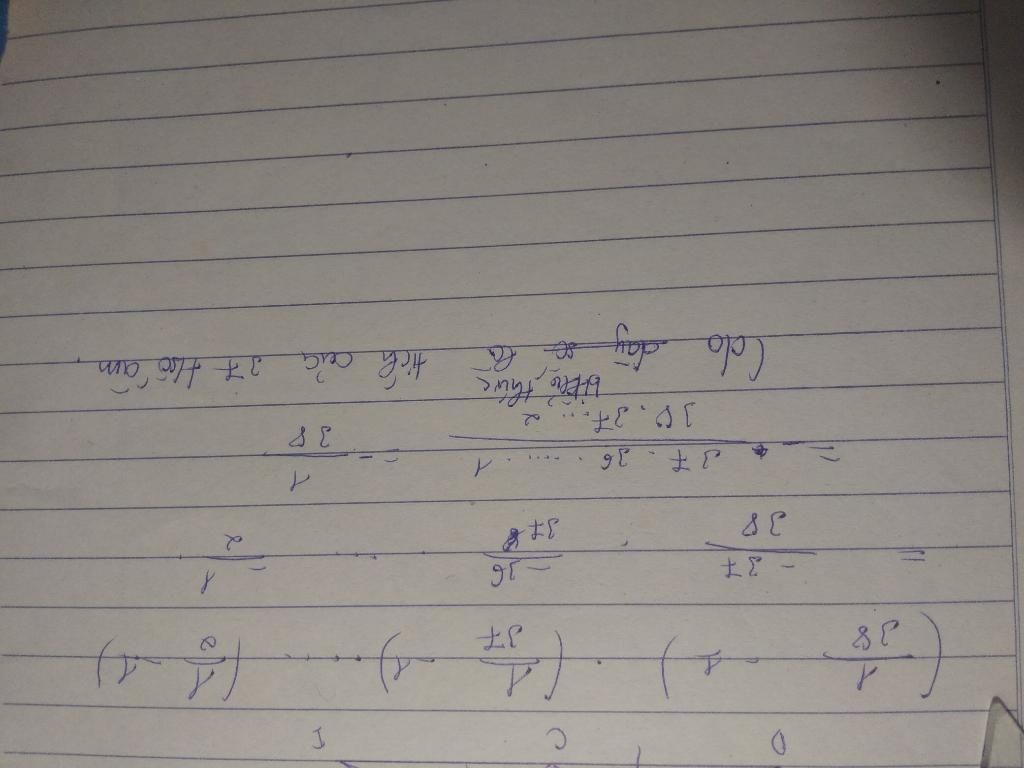 D C I
(1/38 - 1) . (1/37 - 1) ..... (1/2 - 1)
= -37/38 . -36/37 ..... -1/2
= - 37 . 36 ..... 1 / 38 . 37 ..... 2 = - 1/38
(do dãy số biểu thức là tích của 37 thừa số âm